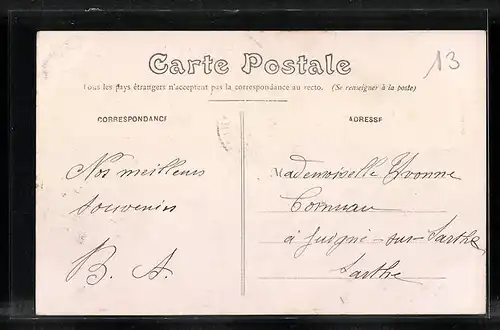 13
Carte Postale
Tous les pays étrangers n'acceptent pas la correspondance au recto. (Se renseigner à la poste)
CORRESPONDANCE
ADRESSE
Nos meilleurs
souvenirs
B. A.
Mademoiselle Yvonne
Cornuau
à Juigné-sur-Sarthe
Sarthe